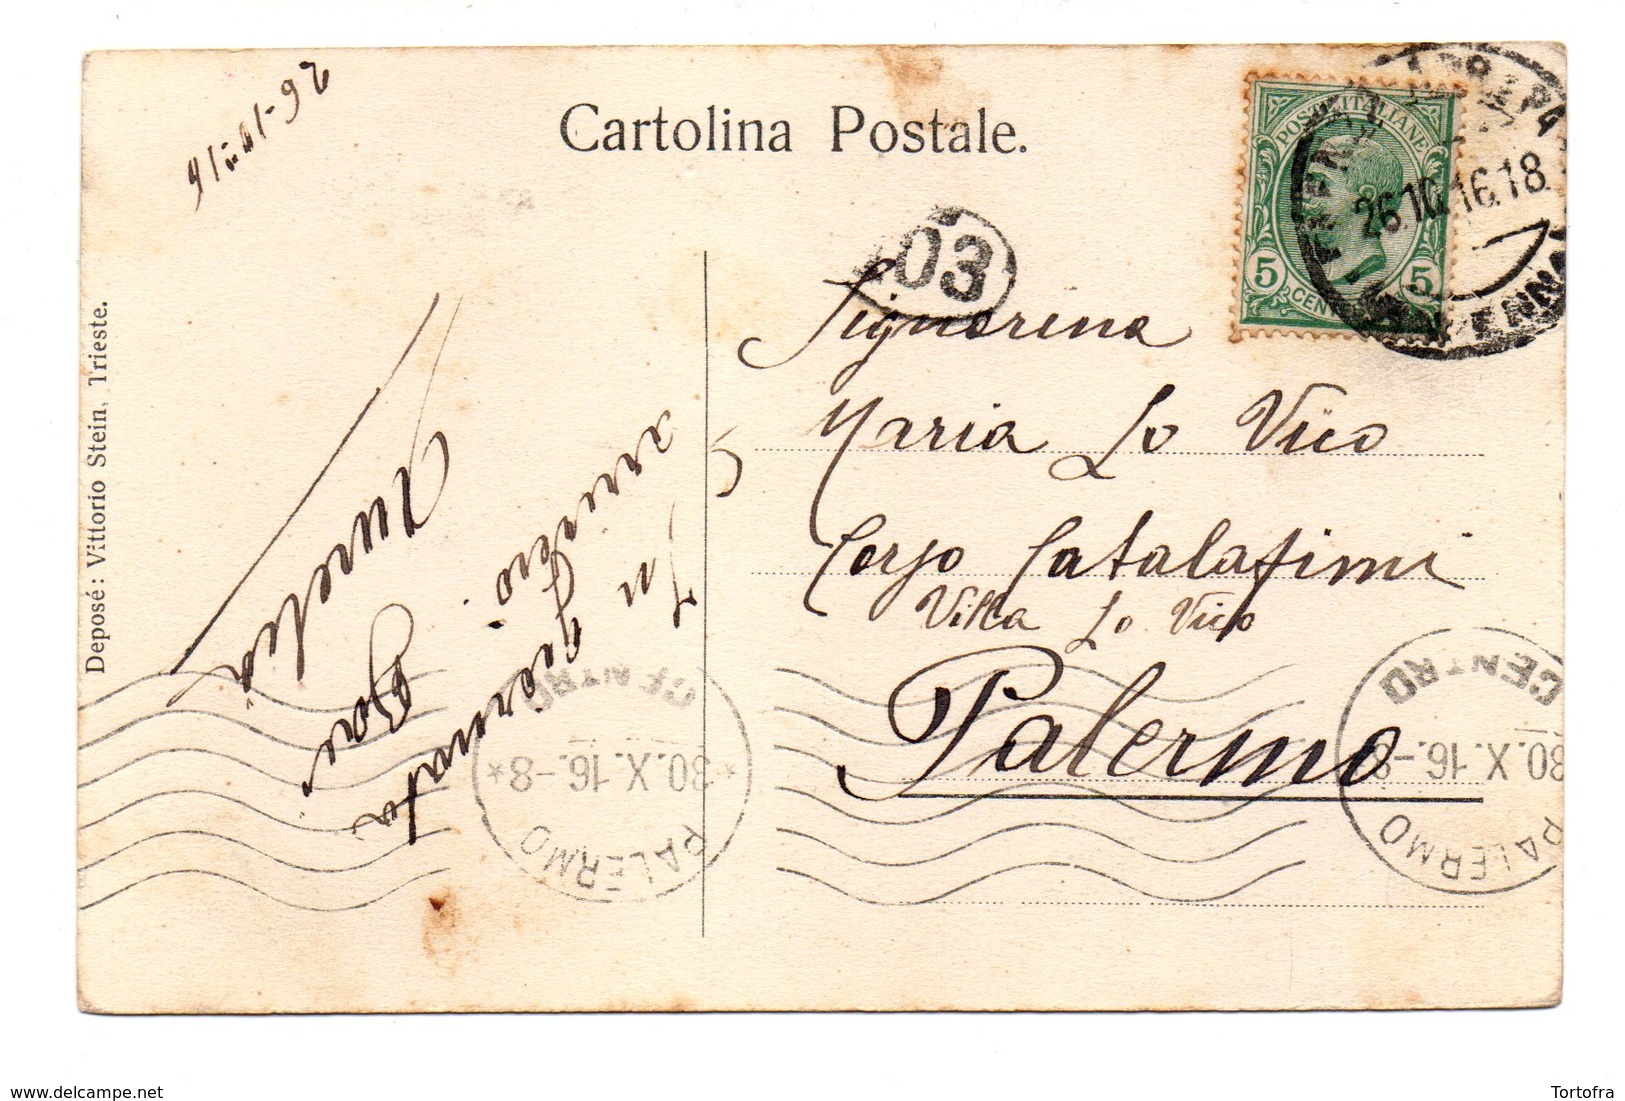 Cartolina Postale.
POSTE ITALIANE
5 5
CEN
26.10.16.18
03
Signorina
Maria Lo Vico
Corso Catalafimi
Villa Lo Vico
Palermo
Deposé: Vittorio Stein, Trieste.
26-10-916
Aurelia
PALERMO
30.X.16.-8
CENTRO
PALERMO
30.X.16.-8
CENTRO
delcampe.net
Tortofra